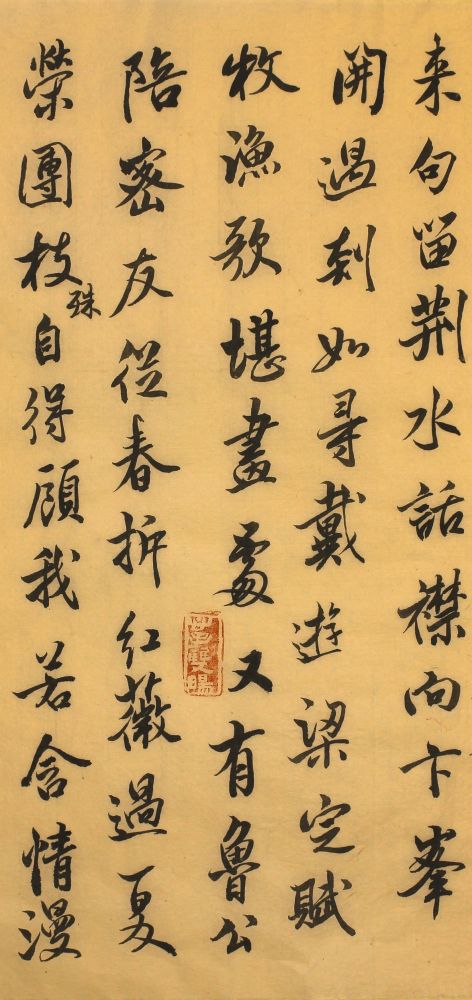 来句留荆水話襟向卞峯
開過剡如尋戴遊梁定賦
枚漁歌堪畫處又有魯公
陪密友從春拆紅薇過夏
榮團枝殊自得顧我若含情漫